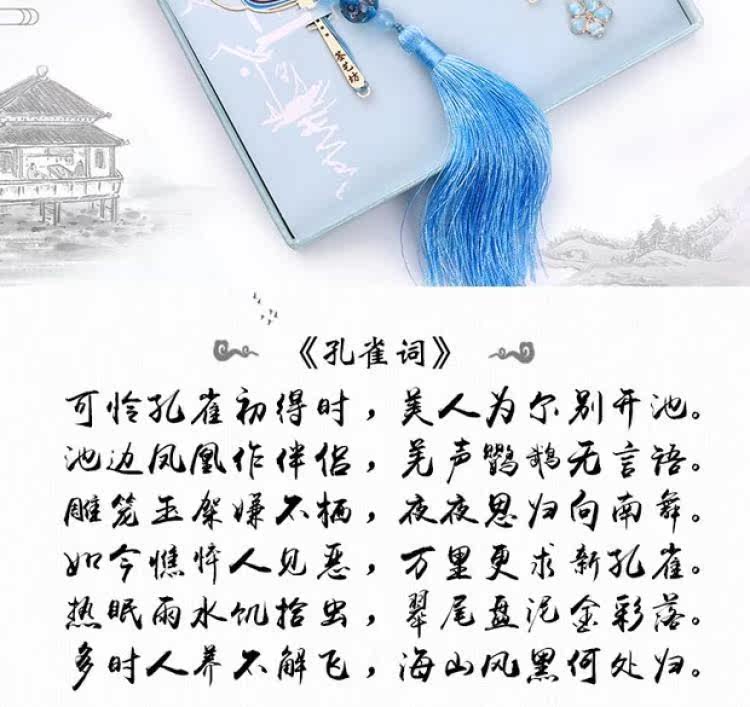 《孔雀词》
可怜孔雀初得时，美人为尔别开池。
池边凤凰作伴侣，羌声鹦鹉无言语。
雕笼玉架嫌不栖，夜夜思归向南舞。
如今憔悴人见恶，万里更求新孔雀。
热眠雨水饥拾虫，翠尾盘泥金彩落。
多时人养不解飞，海山风黑何处归。